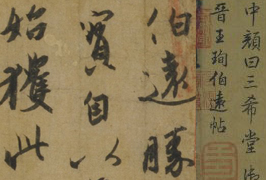 中顏曰三希堂御
晉王珣伯遠帖
伯遠勝
寶自以
始獲此